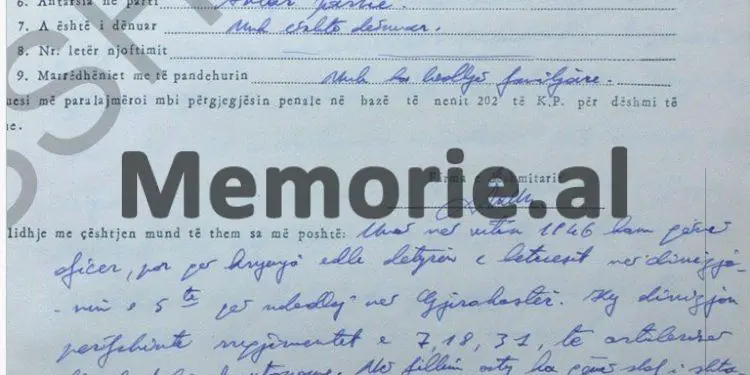 6. Antarsia në parti Anëtar partie.
7. A është i dënuar Nuk është dënuar.
8. Nr: letër njoftimit
9. Marrëdhëniet me të pandehurin Nuk ka lidhje familjare.
uesi më paralajmëroi mbi përgjegjësin penale në bazë të nenit 202 të K.P. për dëshmi të
me.
Firma e dëshmitarit
Memorie.al
lidhje me çështjen mund të them sa më poshtë: Unë në vitin 1946 kam qënë
oficer, por që kryenja edhe detyrën e hetuesit në divizjo-
nin e 5të që ndodhej në Gjirokastër. Ky divizjon
përfshinte regjimentet e 7, 18, 31, të artilerisë
Në fillim aty ka qënë shef i shta-